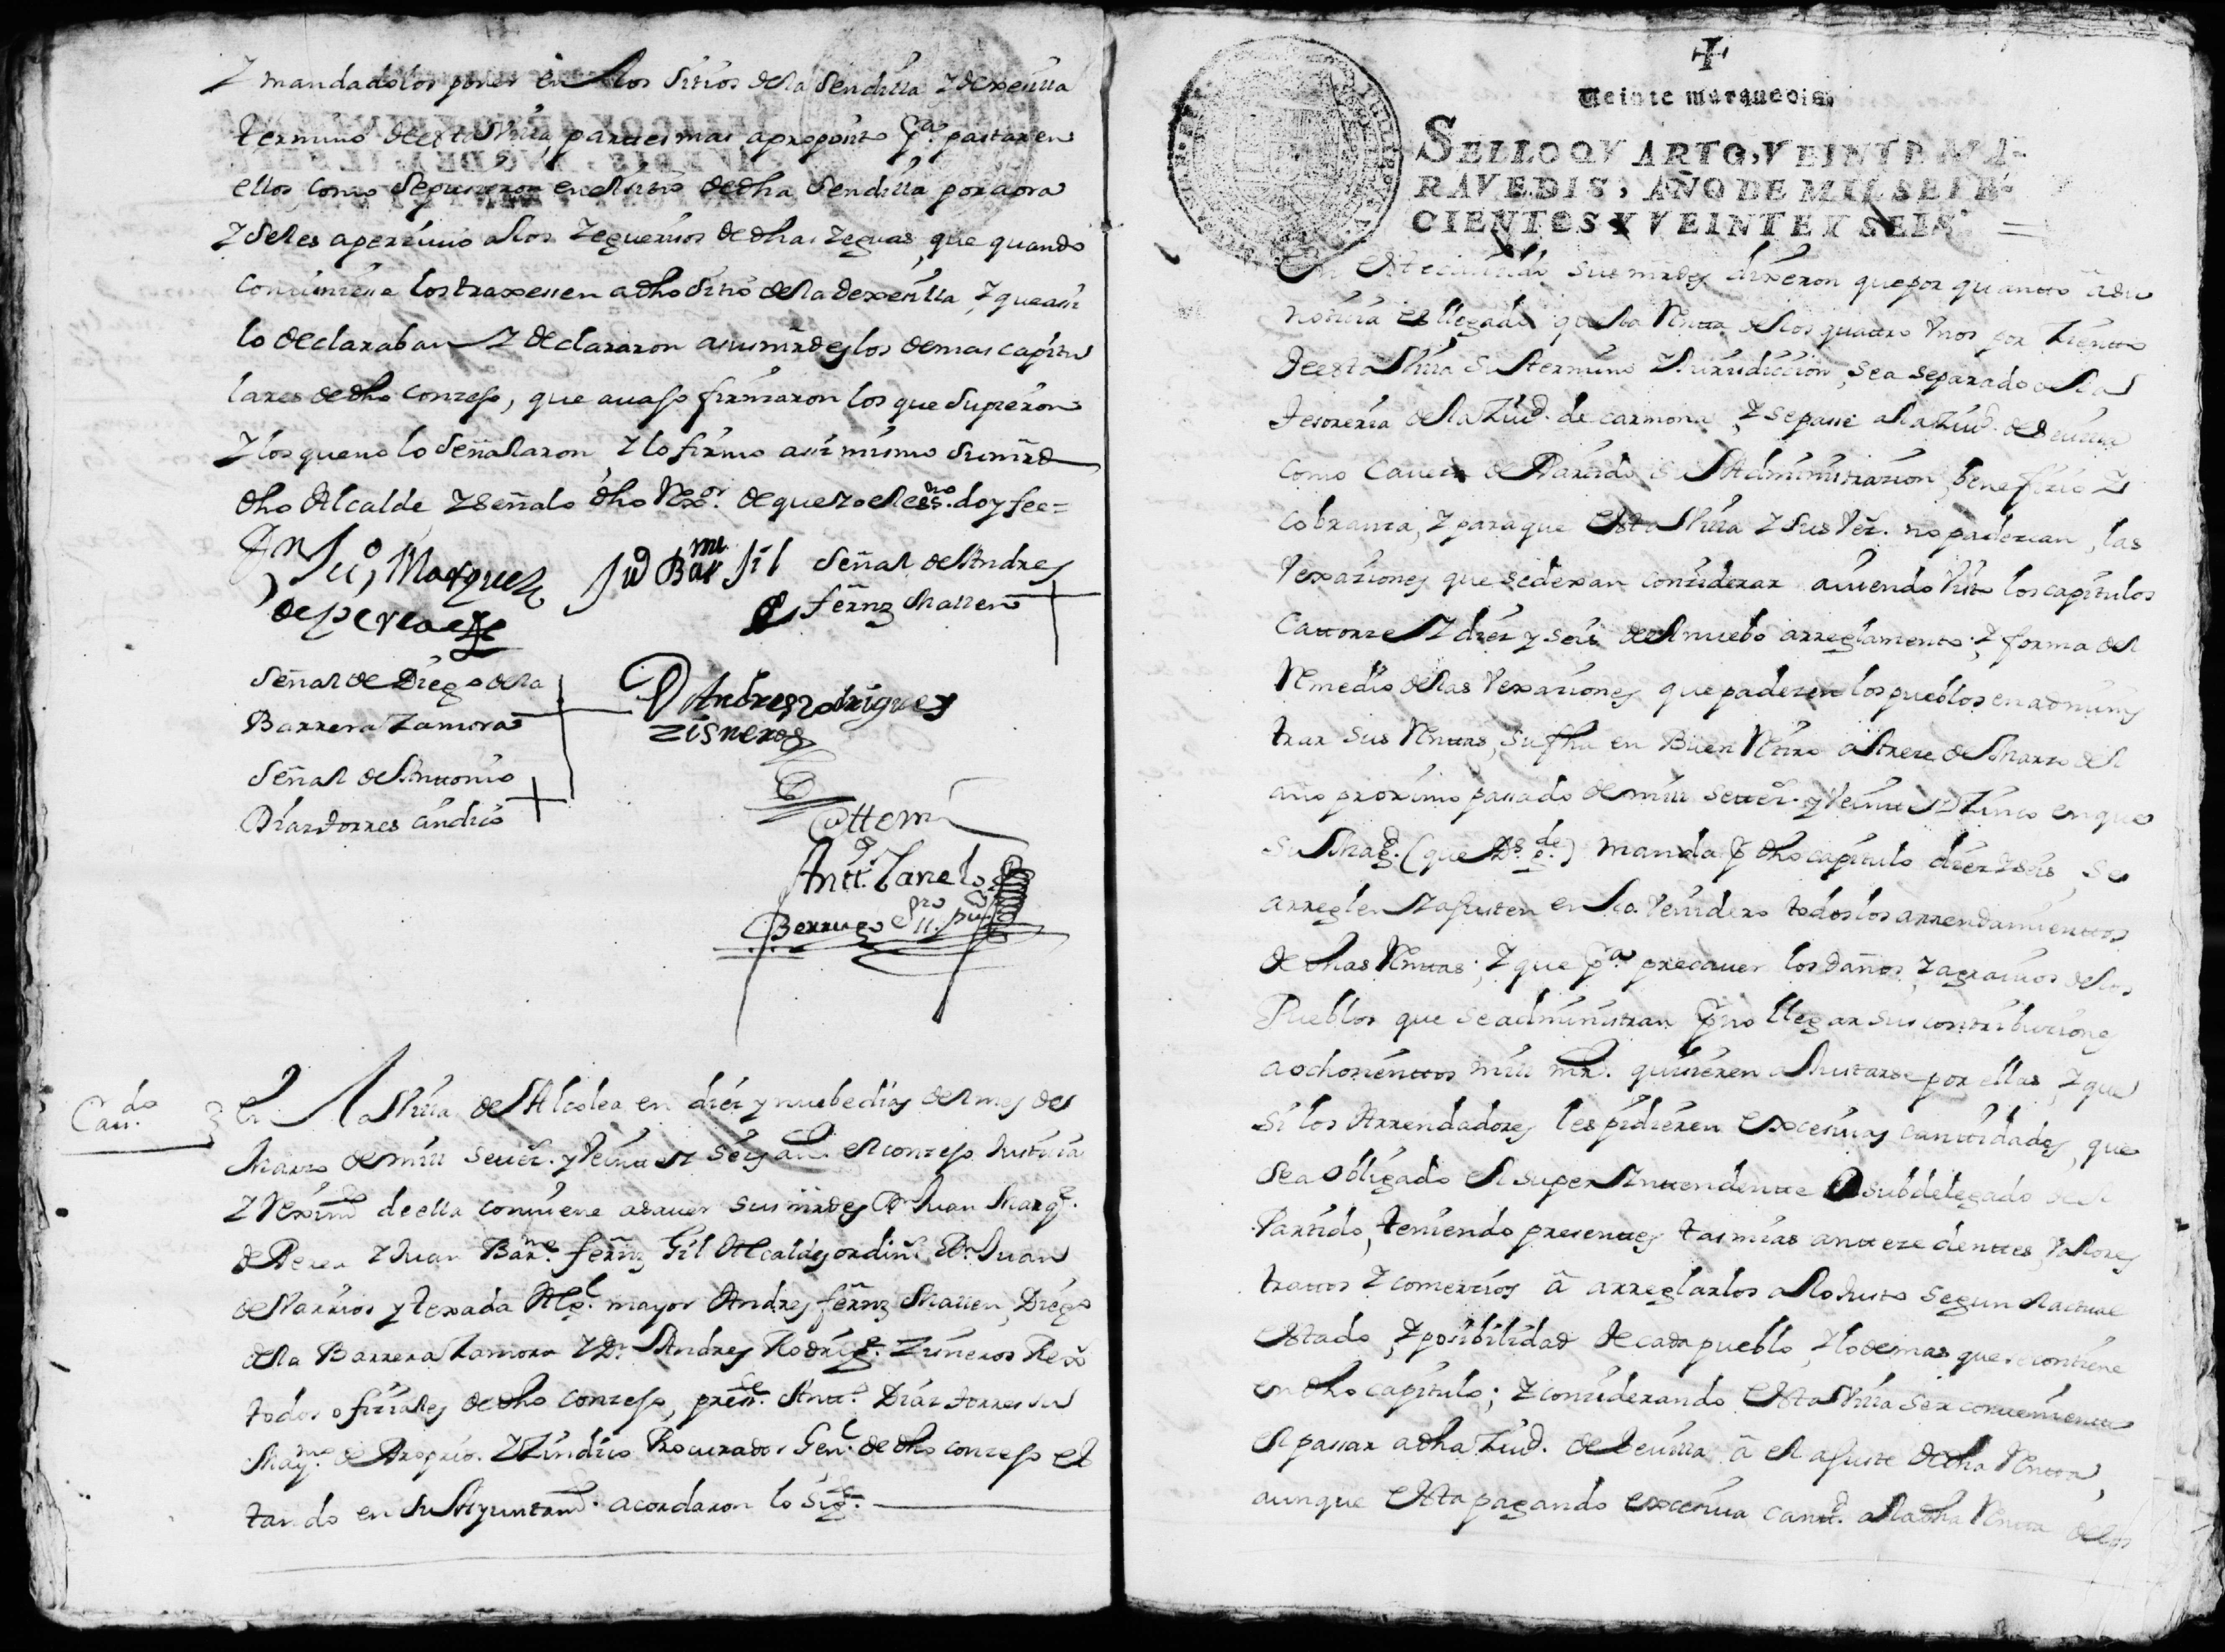 Y mandadolos poner en los sitios de la sendilla y dexesilla
termino de esta Villa, partes mas a proposito pa. pastar en
ellos como se pusieron en el sitio de dha sendilla por aora
y se les aperzivio a los Yeguerizos de dhas Yeguas, que quando
conviniese los traxesen a dho sitio de la dexesilla, y que assi
lo declaraban y declararon a sus mrdes los demas capitu
lares de dho conzejo, que avajo firmaron los que supieron
y los que no lo señalaron, y lo firmo assi mismo su mrd
dho Alcalde y señalo dho Rexor. de que yo el essno. doy fee=
Dn Ju° Marquez
de perea
Ju° Barme jil
Señal de Andres
fernz Mallen
Señal de Diego de la
Barrera Zamora
D Andres rodrigues
zisneros
Señal de Antonio
Diaz torres cindico
Ante mi
Antto. Zanelo
Berrugo essno. pu
Cavdo.
En la Villa de Alcolea en diez y nuebe dias del mes de
Marzo de mill settez. y veintte y seis as. el conzejo Justizia
y Reximto de ella conviene a saver sus mrdes Dn Juan Marqz.
de Perea y Juan Barme. fernz Gil Alcaldes ordins. Dn Juan
de Barrios y texada Algl. mayor Andres fernz Mallen, Diego
de la Barrera Zamora y Dn. Andres Rodrigz. Zisneros Rexs
todos ofiziales de dho conzejo, press. Antto. Diaz torres su
Maymo. de Propios. y Zindico Procurador Genl. de dho conzejo es
tando en su Ayuntamto. acordaron lo sigte.
Veinte marauedis
SELLO QVARTO, VEINTE MA-
RAVEDIS, AÑO DE MIL SETE-
CIENTOS Y VEINTE Y SEIS.
En este cavildo sus mrdes dixeron que por quantto a su
notizia es llegado, que la Rentta de los quattro unos por Zientto
de esta Villa su termino y Jurisdiccion, sea separado de la
tesoreria de la Ziud. de carmona, y se passe a la Ziud. de Sevilla
como caveza de Partido su Administrazion, beneficio y
cobranza, y para que esta Villa y sus vez. no padezcan, las
vexaziones que se dexan considerar aviendo visto los capitulos
cattorze y diez y seis del nuebo arreglamento, y forma del
Remedio de las vexaziones que padezen los pueblos en adminis
trar sus Renttas, su fha en Buen Retiro a treze de Marzo del
año proximo passado de mill settez. y veintte y Zinco en que
su Magd. (que Ds. gde.) manda pr dho capitulo diez y seis, se
arreglen y ajusten en lo venidero todos los arrendamienttos
de dhas Renttas; y que pa. precaver los daños, y agravios de los
Pueblos que se administran pr no llegar sus contribuziones
a ochozienttos mill mrs. quisieren ajustarse por ellas, y que
si los Arrendadores les pidieren excesivas canttidades, que
sea obligado el superInttendentte o subdelegado del
Partido, teniendo presenttes tasmias anttezedenttes, valores
trattos y comerzios a arreglarlos a lo justo segun el actual
estado, y posibilidad de cada pueblo, y lo demas que se contiene
en dho capitulo; y considerando esta Villa ser convenientte
el passar a dha Ziud. de Sevilla a el ajuste de dha Rentta,
aunque esta pagando excesiva cantd. a la dha Rentta de los